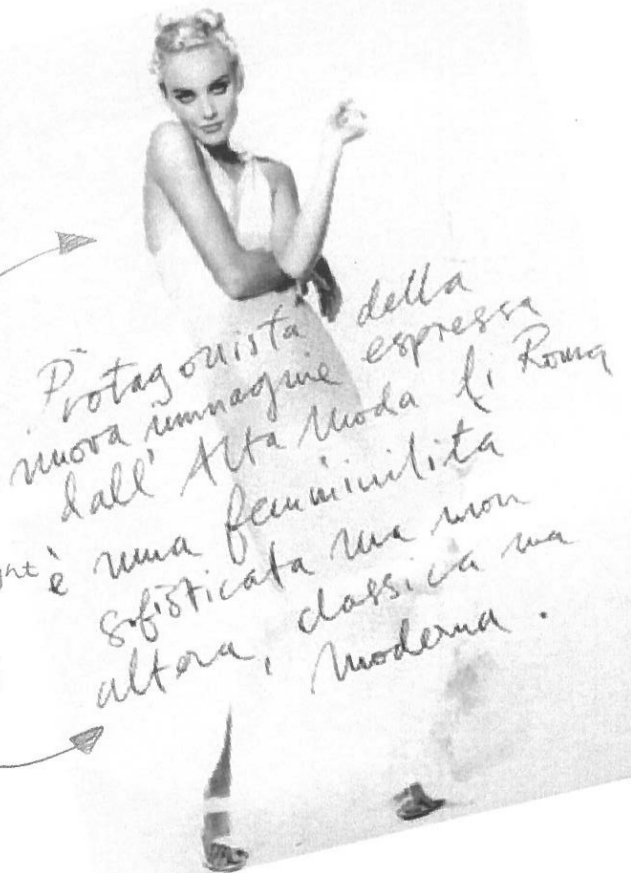 Protagonista della
nuova immagine espressa
dall' Alta Moda di Roma
è una femminilità
sofisticata ma non
altera, classica ma
moderna.